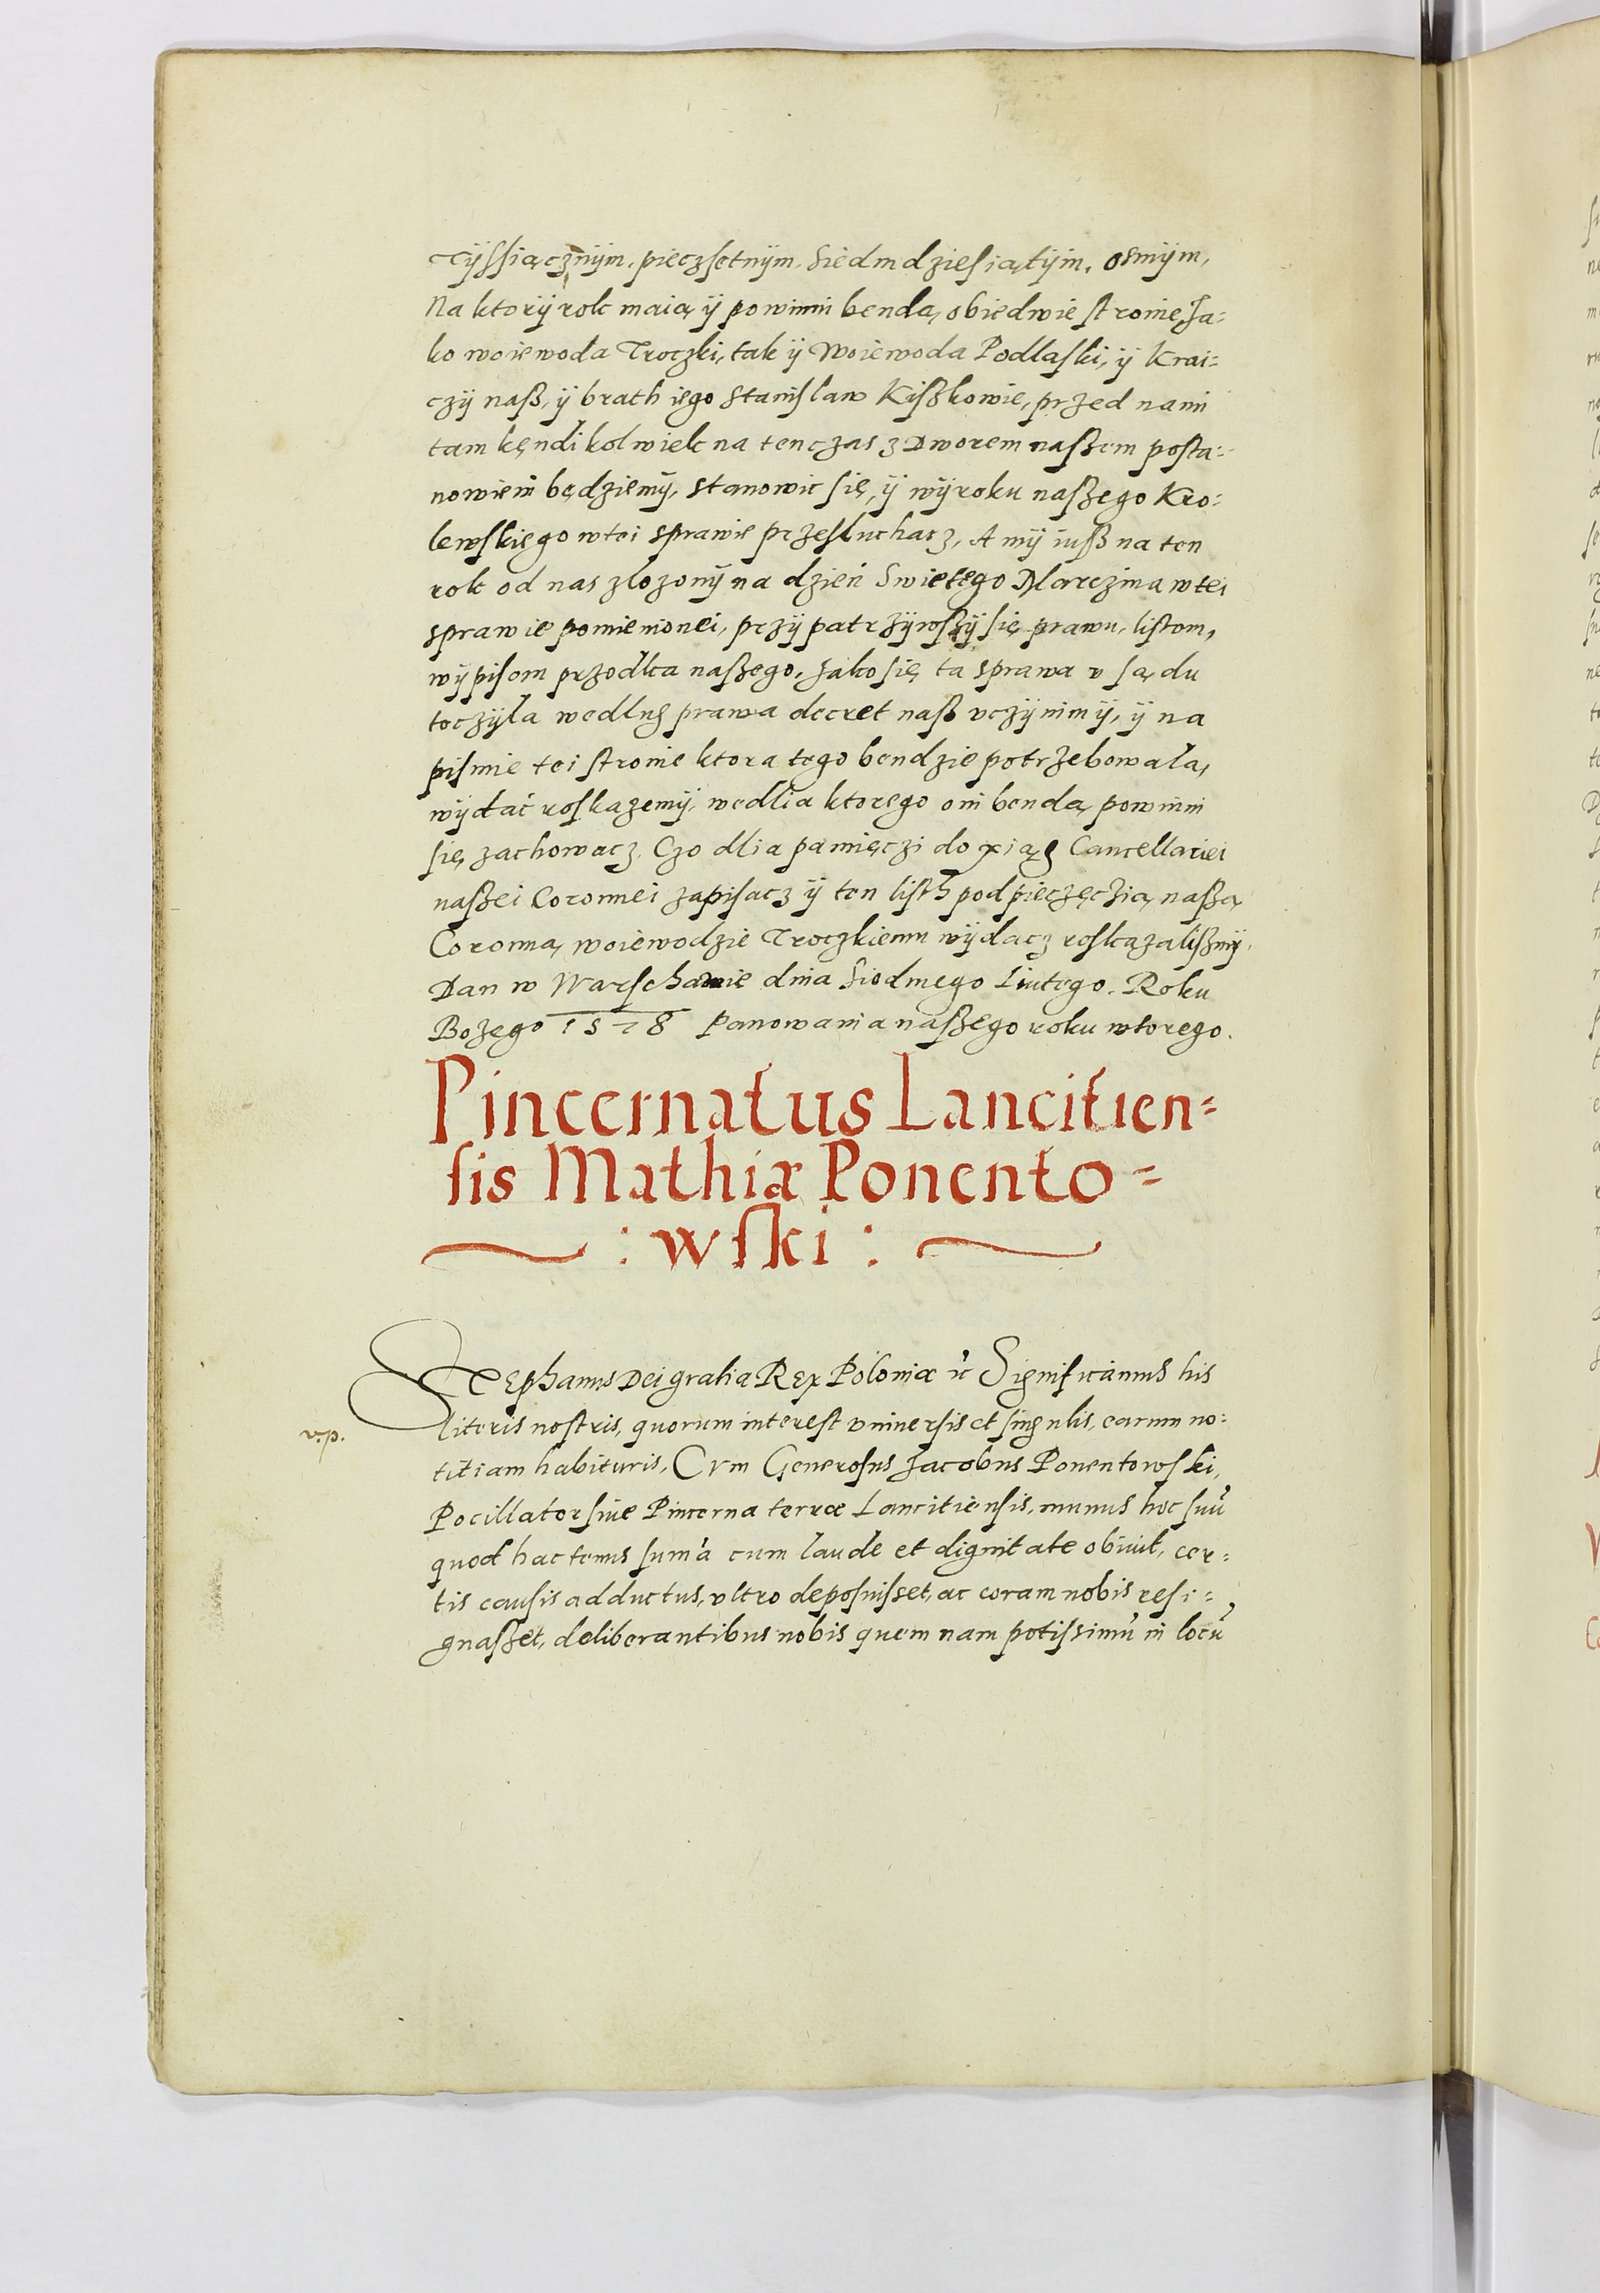 Tÿſſiącznÿm. pieczſetnÿm. Siedmdzieſiątÿm. osmÿm,
Na ktorÿ rok maią ÿ powinni bendą, obiedwie ſtronie, Ja-
ko woiewoda Troczki, tak ÿ Woiewoda Podlaſki, ÿ Krai-
czÿ naß, ÿ brath iego Staniſlaw Kiſzkowie, przed nami
tam kęndi kolwiek na ten czas z Dworem naſzem poſta-
nowieni będziemÿ, stanowic ſię, ÿ wÿroku naſzego Kro-
lewſkiego w tei sprawie przeſłuchacz, A mÿ iuſß na ten
rok od nas zlozonÿ na dzień Swietego Marczina w tei
sprawie pomienionei, przÿpatrzÿwſzÿ ſię prawu, liſtom,
wÿpiſom przodka naſzego, Jako ſię ta sprawa v ſądu
toczÿła wedlug prawa decret naß vczÿnimÿ, ÿ na
piſmie tei ſtronie ktora tego bendzie potrzebowała,
wÿdać roſkazemÿ, wedlia ktorego oni bendą powinni
ſię zachowacz. Czo dlia pamięczi do xiąg Cancellariei
naſzei Coronnei zapiſacz ÿ ten liſth pod pieczęczią naſzą
Coronną, woiewodzie Troczkiemu wÿdacz roſkazaliſzmÿ.
Dan w Warſchawie dnia Siodmego Liutego. Roku
Bozego 1578 Panowania naſzego roku wtorego.
Pincernatus Lancitien-
ſis Mathiæ Ponento-
: wſki :
Stephanus Dei gratia Rex Poloniæ ꝛc Significamus his
v.p.
literis nostris, quorum intereſt vniuerſis et ſingulis, earum no-
titiam habituris, Cvm Generoſus Jacobus Ponentowſki,
Pocillator ſiue Pincerna terræ Lancitienſis, munus hoc ſuū
quod hactenus ſuma cum laude et dignitate obiuit, cer-
tis cauſis adductus, vltro depoſuiſset, ac coram nobis resi-
gnaſzet, deliberantibus nobis quem nam potiſsimū in locū